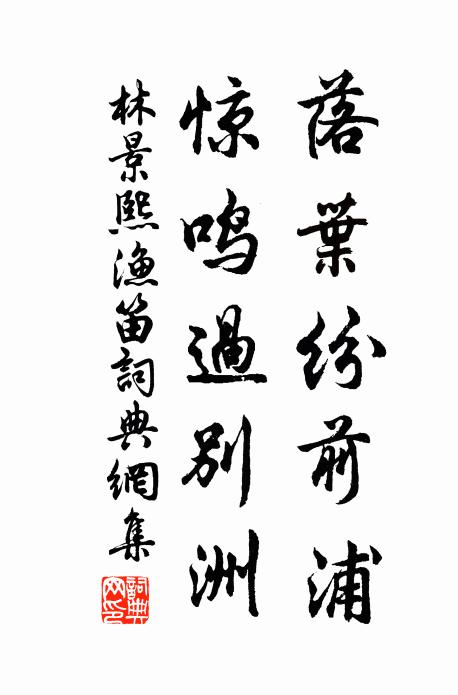 落葉紛前浦
惊鸣過別洲
林景熙漁笛詞典網集
詞典網印